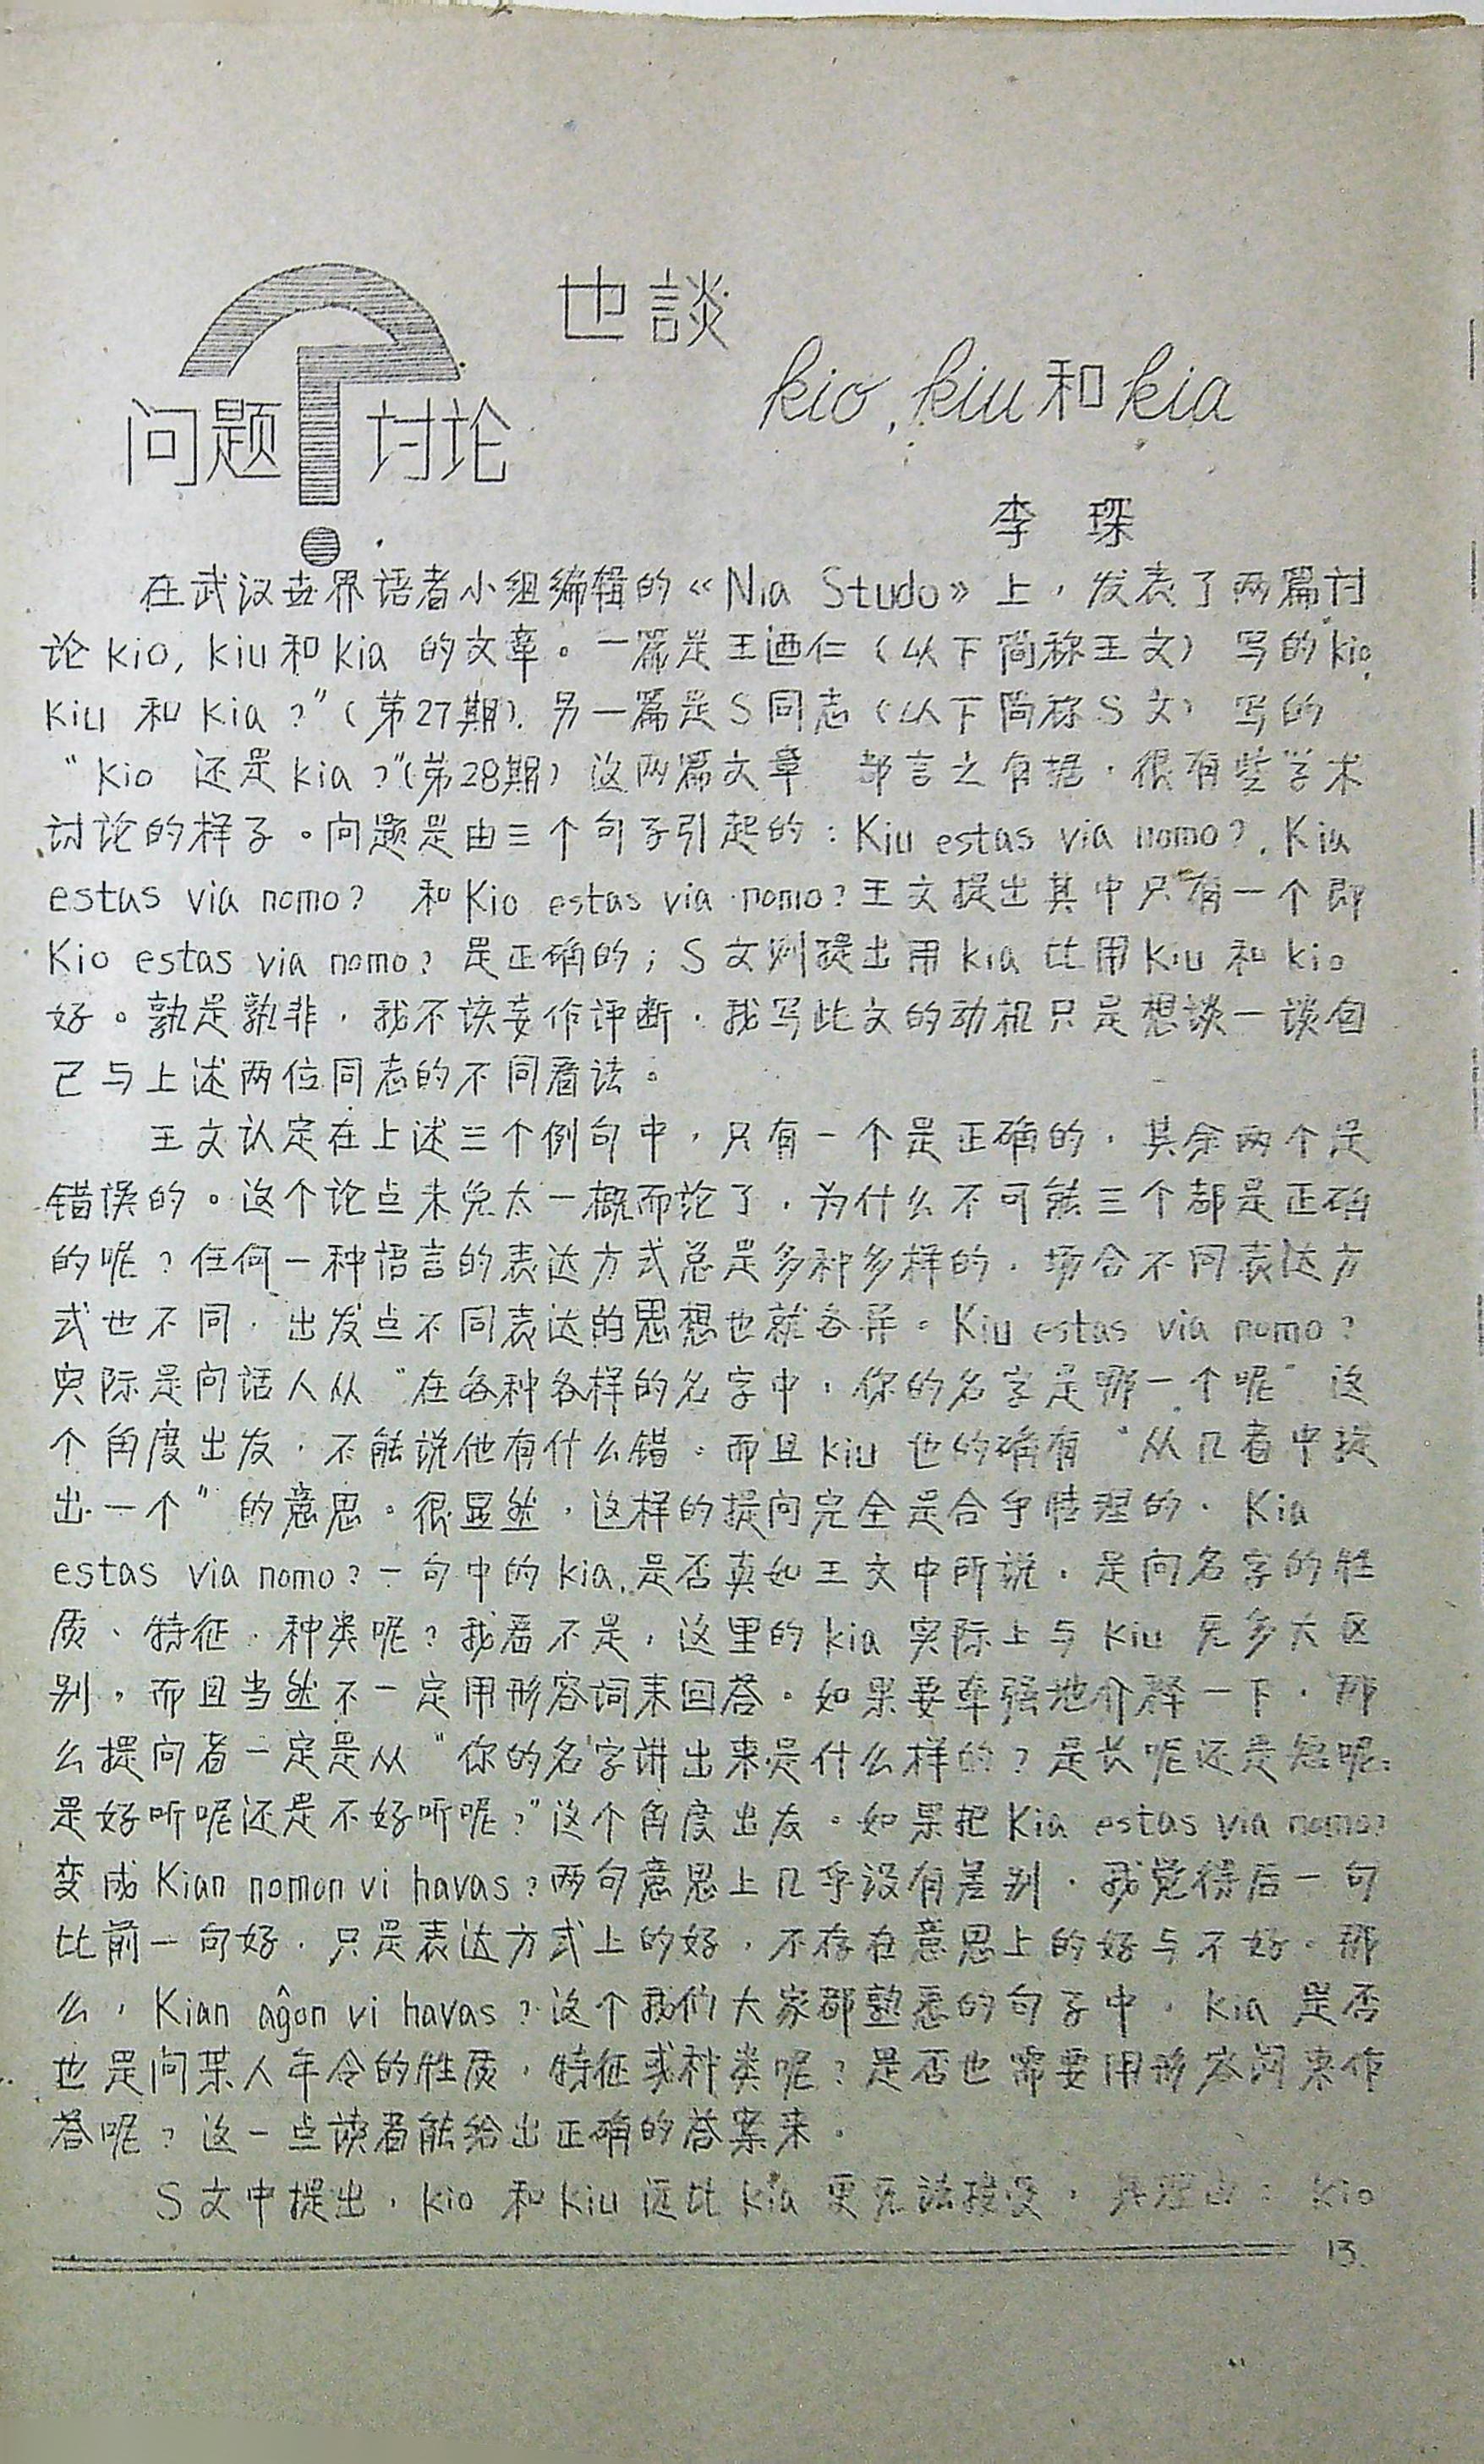 也談
kio, kiu和kia
问题讨论
李 琛
在武汉世界语者小组编辑的《Nia Studo》上，发表了两篇讨
论kio, kiu和kia 的文章。一篇是王迺仁（以下简称王文）写的kio,
Kiu 和 Kia ？”（第27期）. 另一篇是S同志（以下简称S文）写的
“Kio 还是kia？”（第28期）这两篇文章 都言之有据，很有些学术
讨论的样子。问题是由三个句子引起的：Kiu estas via nomo?, Kia
estas via nomo? 和Kio estas via nomo?王文提出其中只有一个即
Kio estas via nomo? 是正确的；S文则提出用kia比用kiu和kio
好。孰是孰非，我不该妄作评断，我写此文的动机只是想谈一谈自
己与上述两位同志的不同看法。
王文认定在上述三个例句中，只有一个是正确的，其余两个是
错误的。这个论点未免太一概而论了，为什么不可能三个都是正确
的呢？任何一种语言的表达方式总是多种多样的，场合不同表达方
式也不同，出发点不同表达的思想也就各异。Kiu estas via nomo?
实际是问话人从“在各种各样的名字中，你的名字是哪一个呢”这
个角度出发，不能说他有什么错。而且kiu 也的确有“从几者中提
出一个”的意思。很显然，这样的提问完全是合乎情理的，Kia
estas via nomo?一句中的kia,是否真如王文中所说，是问名字的性
质、特征、种类呢？我看不是，这里的kia 实际上与kiu 无多大区
别，而且当然不一定用形容词来回答。如果要牵强地介释一下，那
么提问者一定是从“你的名字讲出来是什么样的？是长呢还是短呢；
是好听呢还是不好听呢？”这个角度出发。如果把Kia estas via nomo?
变成Kian nomon vi havas?两句意思上几乎没有差别，我觉得后一句
比前一句好，只是表达方式上的好，不存在意思上的好与不好。那
么，Kian aĝon vi havas?这个我们大家都熟悉的句子中，kia 是否
也是问某人年令的性质，特征或种类呢？是否也需要用形容词来作
答呢？这一点读者能给出正确的答案来。
S文中提出，kio 和kiu 远比kia 更无法接受，其理由：kio
13.